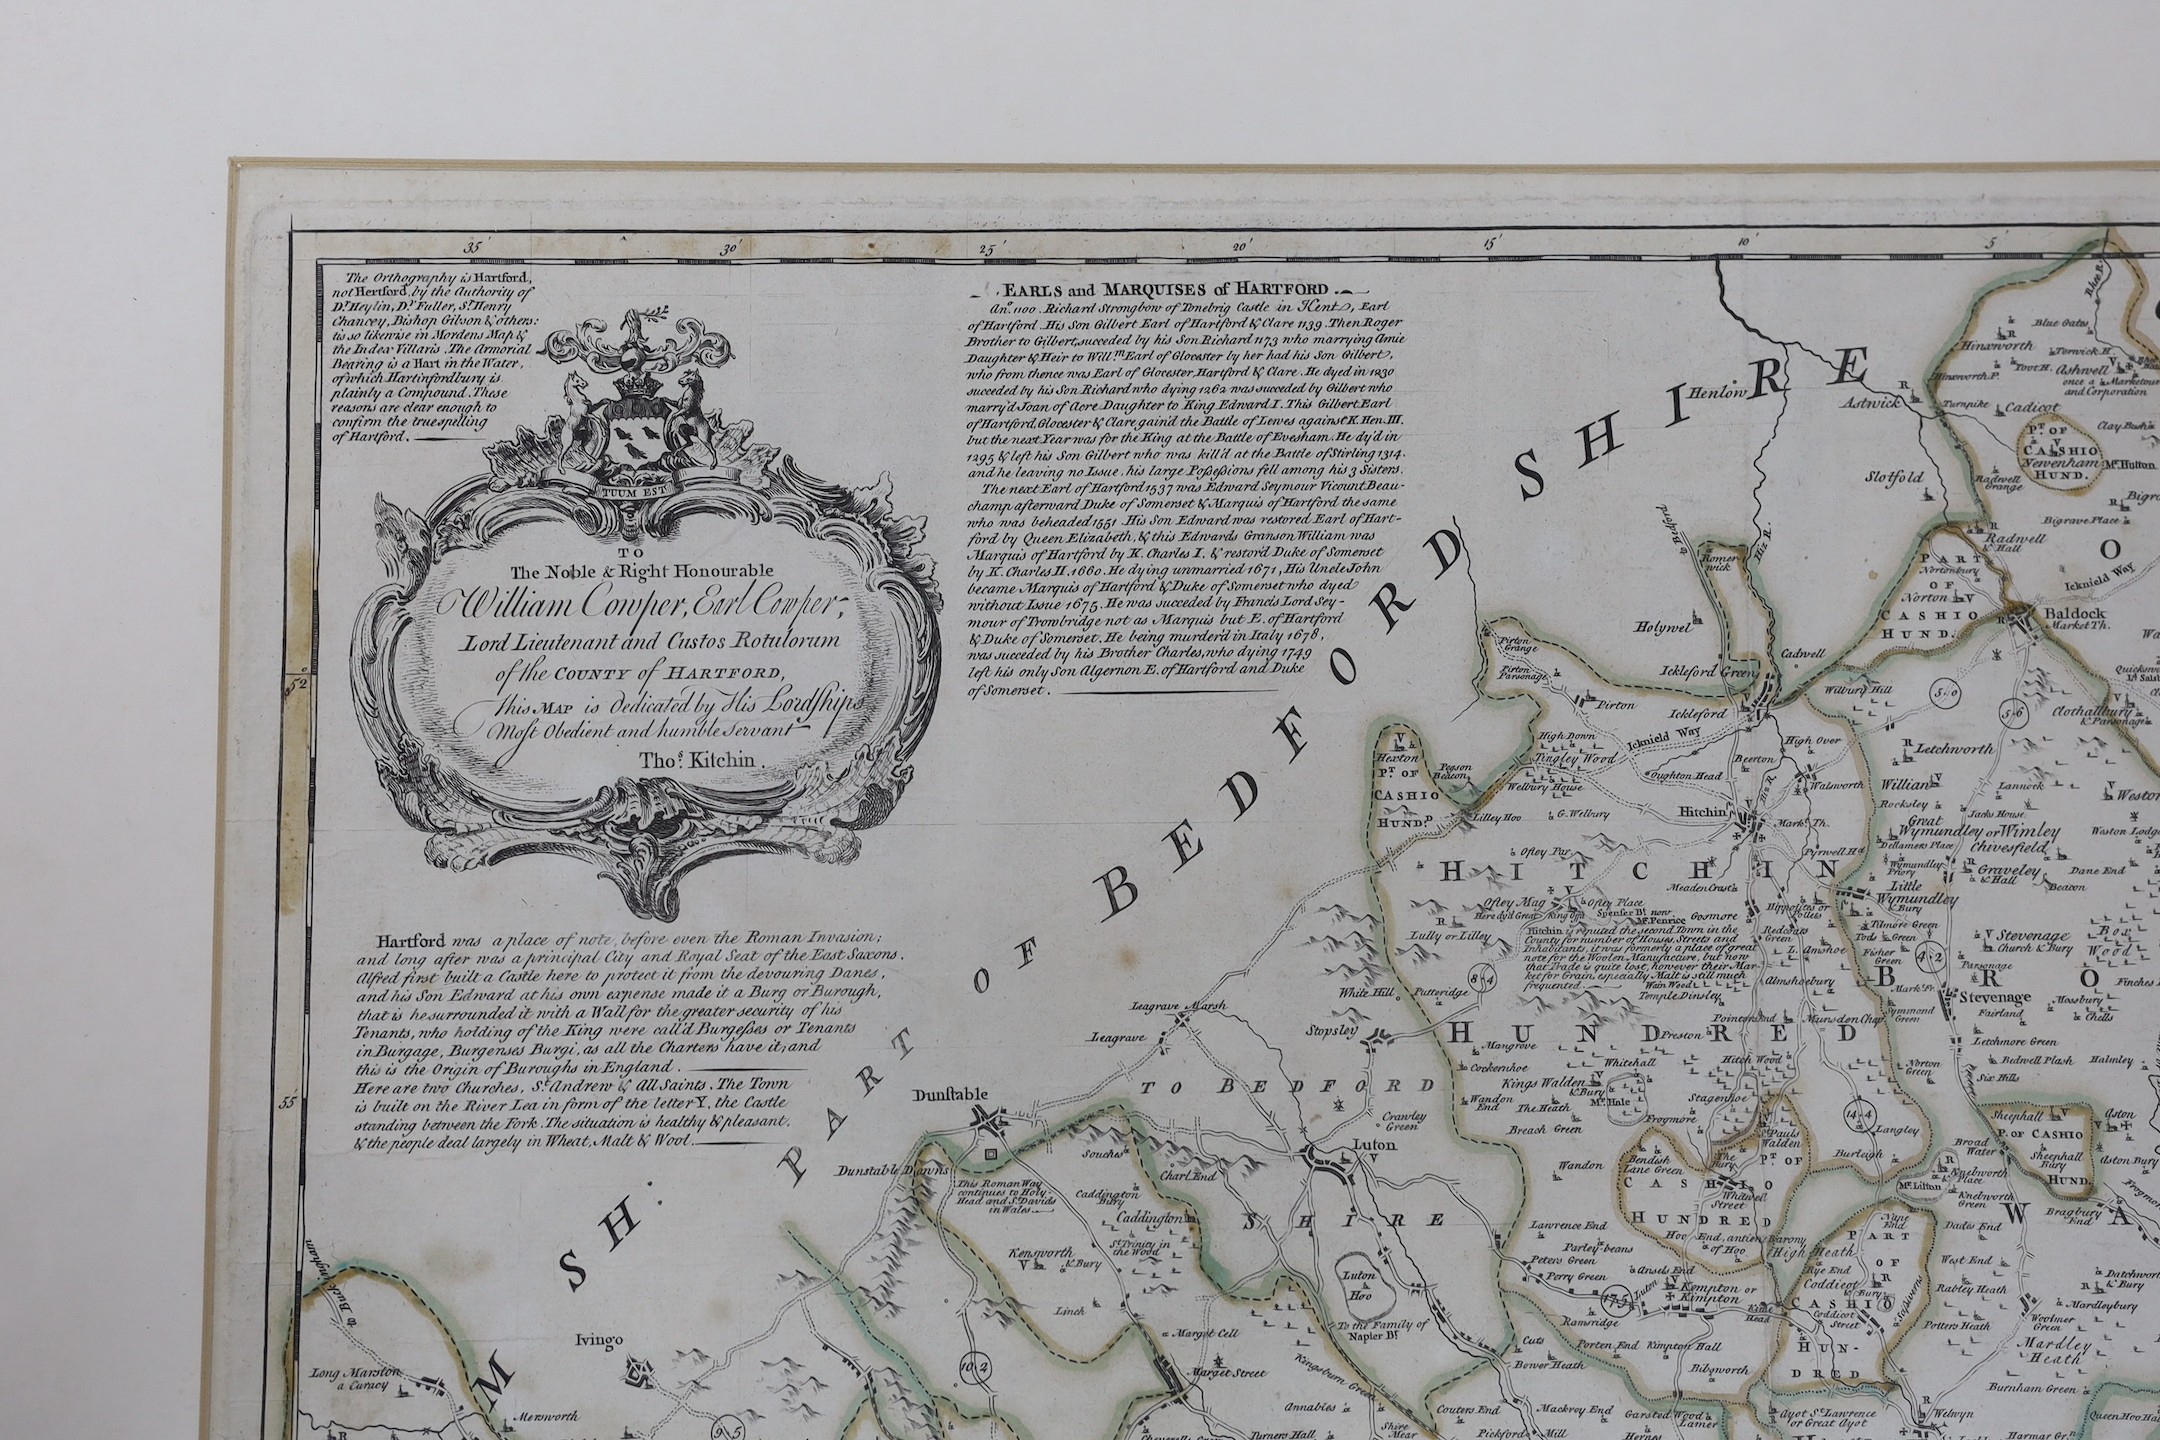 35'
30'
25'
20'
15'
10'
5'
The Orthography is Hartford,
not Hertford, by the Authority of
Dr. Heylin, Dr. Fuller, Sr. Henry
Chancey, Bishop Gibson & others:
tis so likewise in Mordens Map &
the Index Villaris. The Armorial
Bearing is a Hart in the Water,
of which Hartinfordbury is
plainly a Compound. These
reasons are clear enough to
confirm the true spelling
of Hartford.
TUUM EST
TO
The Noble & Right Honourable
William Cowper, Earl Cowper,
Lord Lieutenant and Custos Rotulorum
of the COUNTY of HARTFORD,
this MAP is Dedicated by His Lordships
Most Obedient and humble Servant
Thos. Kitchin.
EARLS and MARQUISES of HARTFORD.
Ano. 1100. Richard Strongbow of Tonebrig Castle in Kent, Earl
of Hartford. His Son Gilbert Earl of Hartford & Clare 1139. Then Roger
Brother to Gilbert, succeded by his Son Richard 1173 who marrying Amie
Daughter & Heir to Willm. Earl of Glocester by her had his Son Gilbert,
who from thence was Earl of Glocester, Hartford & Clare. He dyed in 1230
succeded by his Son Richard who dying 1262 was succeded by Gilbert who
marry'd Joan of Acre Daughter to King Edward I. This Gilbert Earl
of Hartford, Glocester & Clare gain'd the Battle of Lewes against K. Hen. III.
but the next Year was for the King at the Battle of Evesham. He dy'd in
1295 & left his Son Gilbert who was kill'd at the Battle of Stirling 1314.
and he leaving no Issue, his large Possessions fell among his 3 Sisters.
The next Earl of Hartford 1537 was Edward Seymour Vicount Beau-
champ afterward Duke of Somerset & Marquis of Hartford the same
who was beheaded 1551. His Son Edward was restored Earl of Hart-
ford by Queen Elizabeth, & this Edwards Granson William was
Marquis of Hartford by K. Charles I. & restor'd Duke of Somerset
by K. Charles II. 1660. He dying unmarried 1671, His Uncle John
became Marquis of Hartford & Duke of Somerset who dyed
without Issue 1675. He was succeded by Francis Lord Sey-
mour of Trowbridge not as Marquis but E. of Hartford
& Duke of Somerset. He being murder'd in Italy 1678,
was succeded by his Brother Charles, who dying 1749
left his only Son Algernon E. of Hartford and Duke
of Somerset.
52°
Hartford was a place of note, before even the Roman Invasion;
and long after was a principal City and Royal Seat of the East Saxons.
Alfred first built a Castle here to protect it from the devouring Danes,
and his Son Edward at his own expense made it a Burg or Burough,
that is he surrounded it with a Wall for the greater security of his
Tenants, who holding of the King were call'd Burgesses or Tenants
in Burgage, Burgenses Burgi, as all the Charters have it, and
this is the Origin of Buroughs in England.
Here are two Churches, St. Andrew & All Saints. The Town
is built on the River Lea in form of the letter Y, the Castle
standing between the Fork. The situation is healthy & pleasant,
& the people deal largely in Wheat, Malt & Wool.
55
PART OF BEDFORD SHIRE
Blue Gates
Hinxworth
Hinxworth P.
Ashwell
once a Marketown
and Corporation
Henlow
Astwick
Turnpike
Cadicot
Clay Bush
PT. OF
CASHIO
Newenham
HUND.
Mr. Hutton
Slotfold
Radwell
Grange
Bigrave Place
Radwell
& Hall
PART
Nortonbury
OF
Norton
CASHIO
HUND.
Icknield Way
Baldock
Market Th.
to Bedford
Romer
wick
Hiz R.
Holywel
Ickleford Green
Cadwell
Pirton
Grange
Pirton
Parsonage
Pirton
Ickleford
Wilbury Hill
5-0
5-6
Clothallbury
& Parsonage
High Down
Icknield Way
High Over
Letchworth
Hexton
PT. OF
CASHIO
HUND.
Pegson
Beacon
Tingley Wood
Welbury House
Oughton Head
Beerton
Walsworth
Willian
Lannock
Weston
Rocksley
Jacks House
Lilley Hoo
G. Welbury
Hitchin
Markt. Th.
Great
Wymundley or Wimley
Weston Lodge
Dellamers Place
Chivesfield
Ofley Par
HITCHIN
HUNDRED
Wymundley
Priory
Graveley
& Hall
Dane End
Little
Wymundley
& Bury
Beacon
Ofley Mag
Ofley Place
Here dyd Great King Offa
Spenser Bt. now
Mr. Penrice
Gosmore
Lully or Lilley
Hitchin is reputed the second Town in the
County for number of Houses Streets and
Inhabitants, it was formerly a place of great
note for the Woolen Manufacture, but now
that Trade is quite lost, however their Mar-
ket for Grain, especially Malt is still much
frequented.
Wain Wood
Temple Dinsley
Redcoats
Green
L. Almshoe
Almshoebury
Tilmore Green
Tods Green
Fisher
Green
4-2
Stevenage
Church & Bury
Box
Wood
Parsonage
BRO
Stevenage
Mossbury
Chells
Fairland
Symmond
Green
Finches
White Hill
Putteridge
8-4
Stopsley
Leagrave Marsh
Leagrave
Mangrove
Cockernhoe
Preston
Whitehall
Hitch Wood
Letchmore Green
Bedwell Plash
Halmley
Norton
Green
Six Hills
Dunstable
TO BEDFORD
SHIRE
Crawley
Green
Luton
Kings Walden
& Bury
Mr. Hale
Stagenhoe
Wandon
End
The Heath
Frogmore
Breach Green
Pauls
Walden
PT. OF
CASHIO
HUNDRED
14-4
Langley
Sheephall
P. OF CASHIO
Sheephall
Bury
HUND.
Aston
Aston Bury
Broad
Water
Dunstable Downs
This Roman Way
continues to Holy
Head and St. Davids
in Wales
Souches
Charl End
Caddington
Bury
Caddington
St. Trinity in
the Wood
Kensworth
& Bury
Wandon
Bendish
Lane Green
The
Bury
Whitwell
Street
Burleigh
Mr. Litton
Knebworth
Place
Knebworth
Green
Bragbury
End
Hoo End, antient Barony
of Hoo
Lawrence End
Parley-beans
Peters Green
Perry Green
Ansels End
High Heath
Nupe
End
PART
OF
Rye End
Coddicot
& Bury
CASHIO
Coddicot
Street
HUN-
DRED
Dades End
West End
Rabley Heath
Datchworth
& Bury
Mardleybury
Potters Heath
Woolmer
Green
Mardley
Heath
Burnham Green
SH:
Linch
Luton
Hoo
To the Family of
Napier Bt.
17-5
Kempton or
Kimpton
Ramsridge
Kime
Head
Cuts
Porten End
Kimpton Hall
Bower Heath
Bibsworth
to Buckingham
Ivingo
10-2
Market Cell
Market Street
Kingsburn Green
Long Marston
a Curacy
M
Mersworth
9-5
Annables
Couters End
Mackroy End
Garsted Wood
Lamer
Ayot St. Lawrence
or Great Ayot
Welwyn
Queen Hoo Hall
Turners Hall
Shire
Mear
Pickford Mill
Harmar Grn.